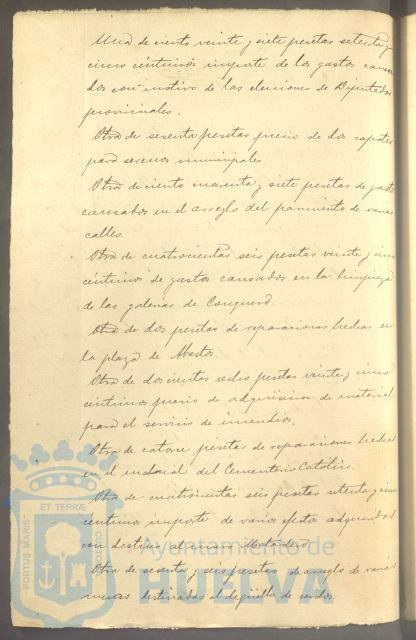 Una de ciento veinte y siete pesetas setenta y
cinco céntimos importe de los gastos causa
dos con motivo de las elecciones de Diputados
provinciales.
Otra de sesenta pesetas precio de dos capotes
para serenos municipales
Otra de ciento cuarenta y siete pesetas de gastos
causados en el arreglo del pavimento de varias
calles.
Otra de cuatrocientas seis pesetas veinte y cinco
céntimos de gastos causados en la limpieza
de las galerias de Conquero.
Otra de dos pesetas de reparaciones hechas en
la plaza de Abastos.
Otra de doscientas pesetas veinte y cinco
céntimos precio de adquisicion de material
para el servicio de incendios.
Otra de catorce pesetas de reparaciones hechas
en el del Cementerio Católico.
Otra de cuatrocientas seis pesetas setenta y cinco
céntimos importe de varios efectos adquiridos
con destino al nuevo Matadero.
Otra de sesenta y seis pesetas de arreglo de varias
destinadas al degüello de cerdos.
PORTUS MARIS
ET TERRÆ
CUSTODIA
Ayuntamiento de
HUELVA